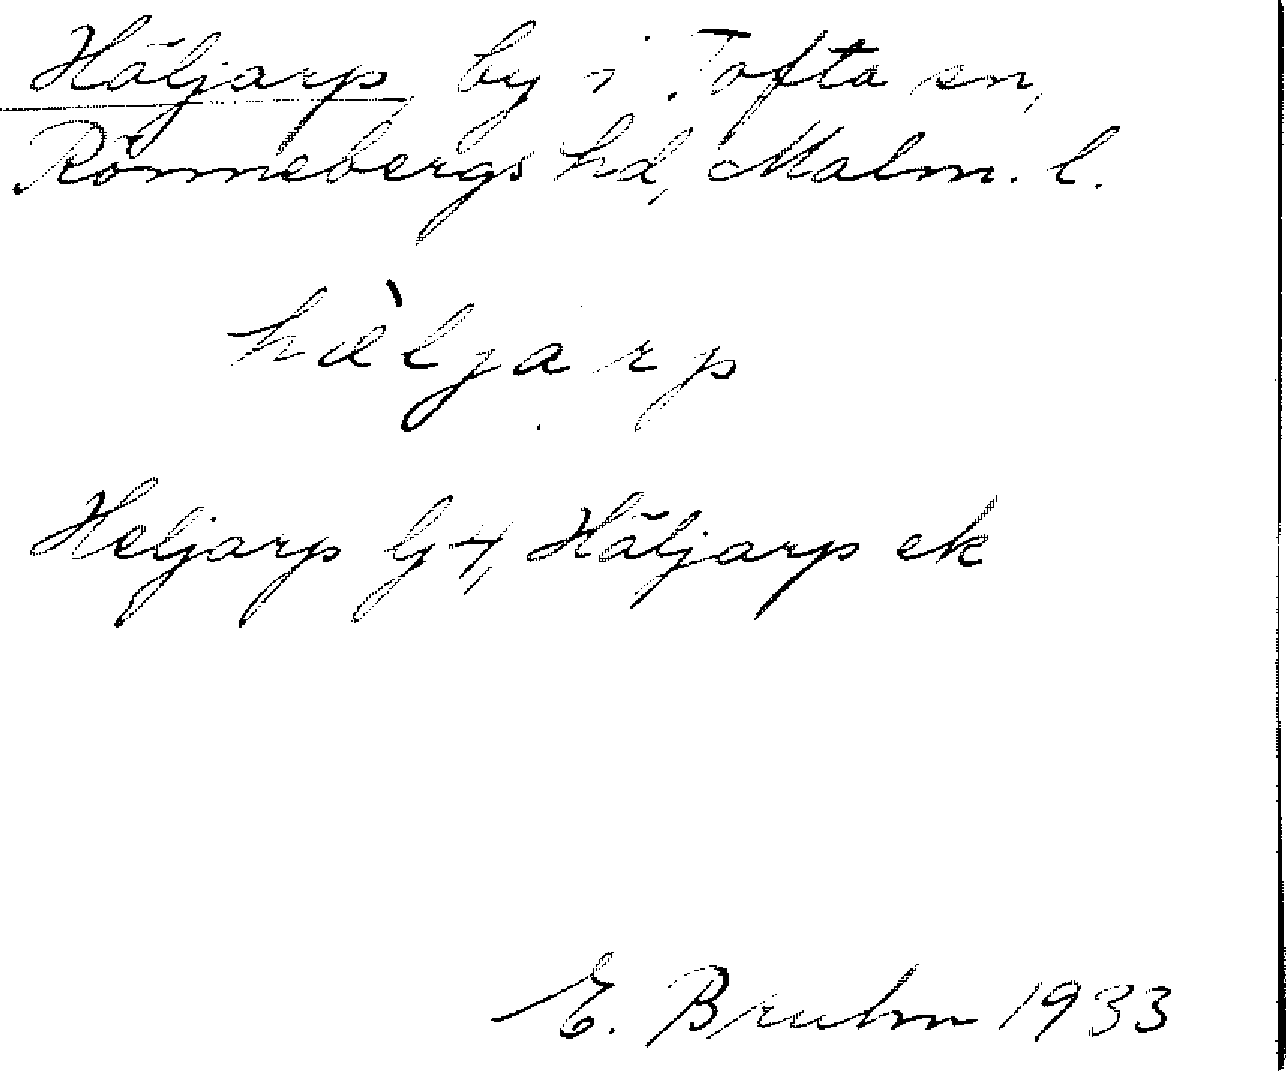 Häljarp, by i Tofta sn,
Rönnebergs hd, Malm. l.
hæ̀ljarp
Heljarp Gj 4, Häljarp ek
E. Bruhn 1933